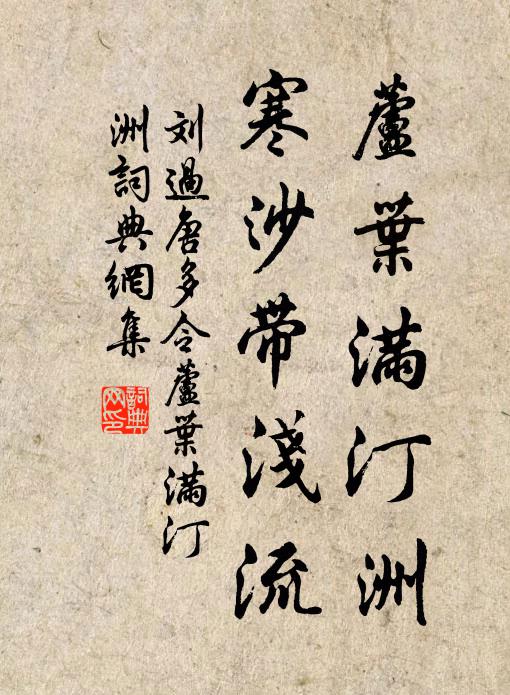 蘆葉滿汀洲
寒沙帶淺流
刘過唐多令蘆葉滿汀
洲詞典網集
詞典
网印